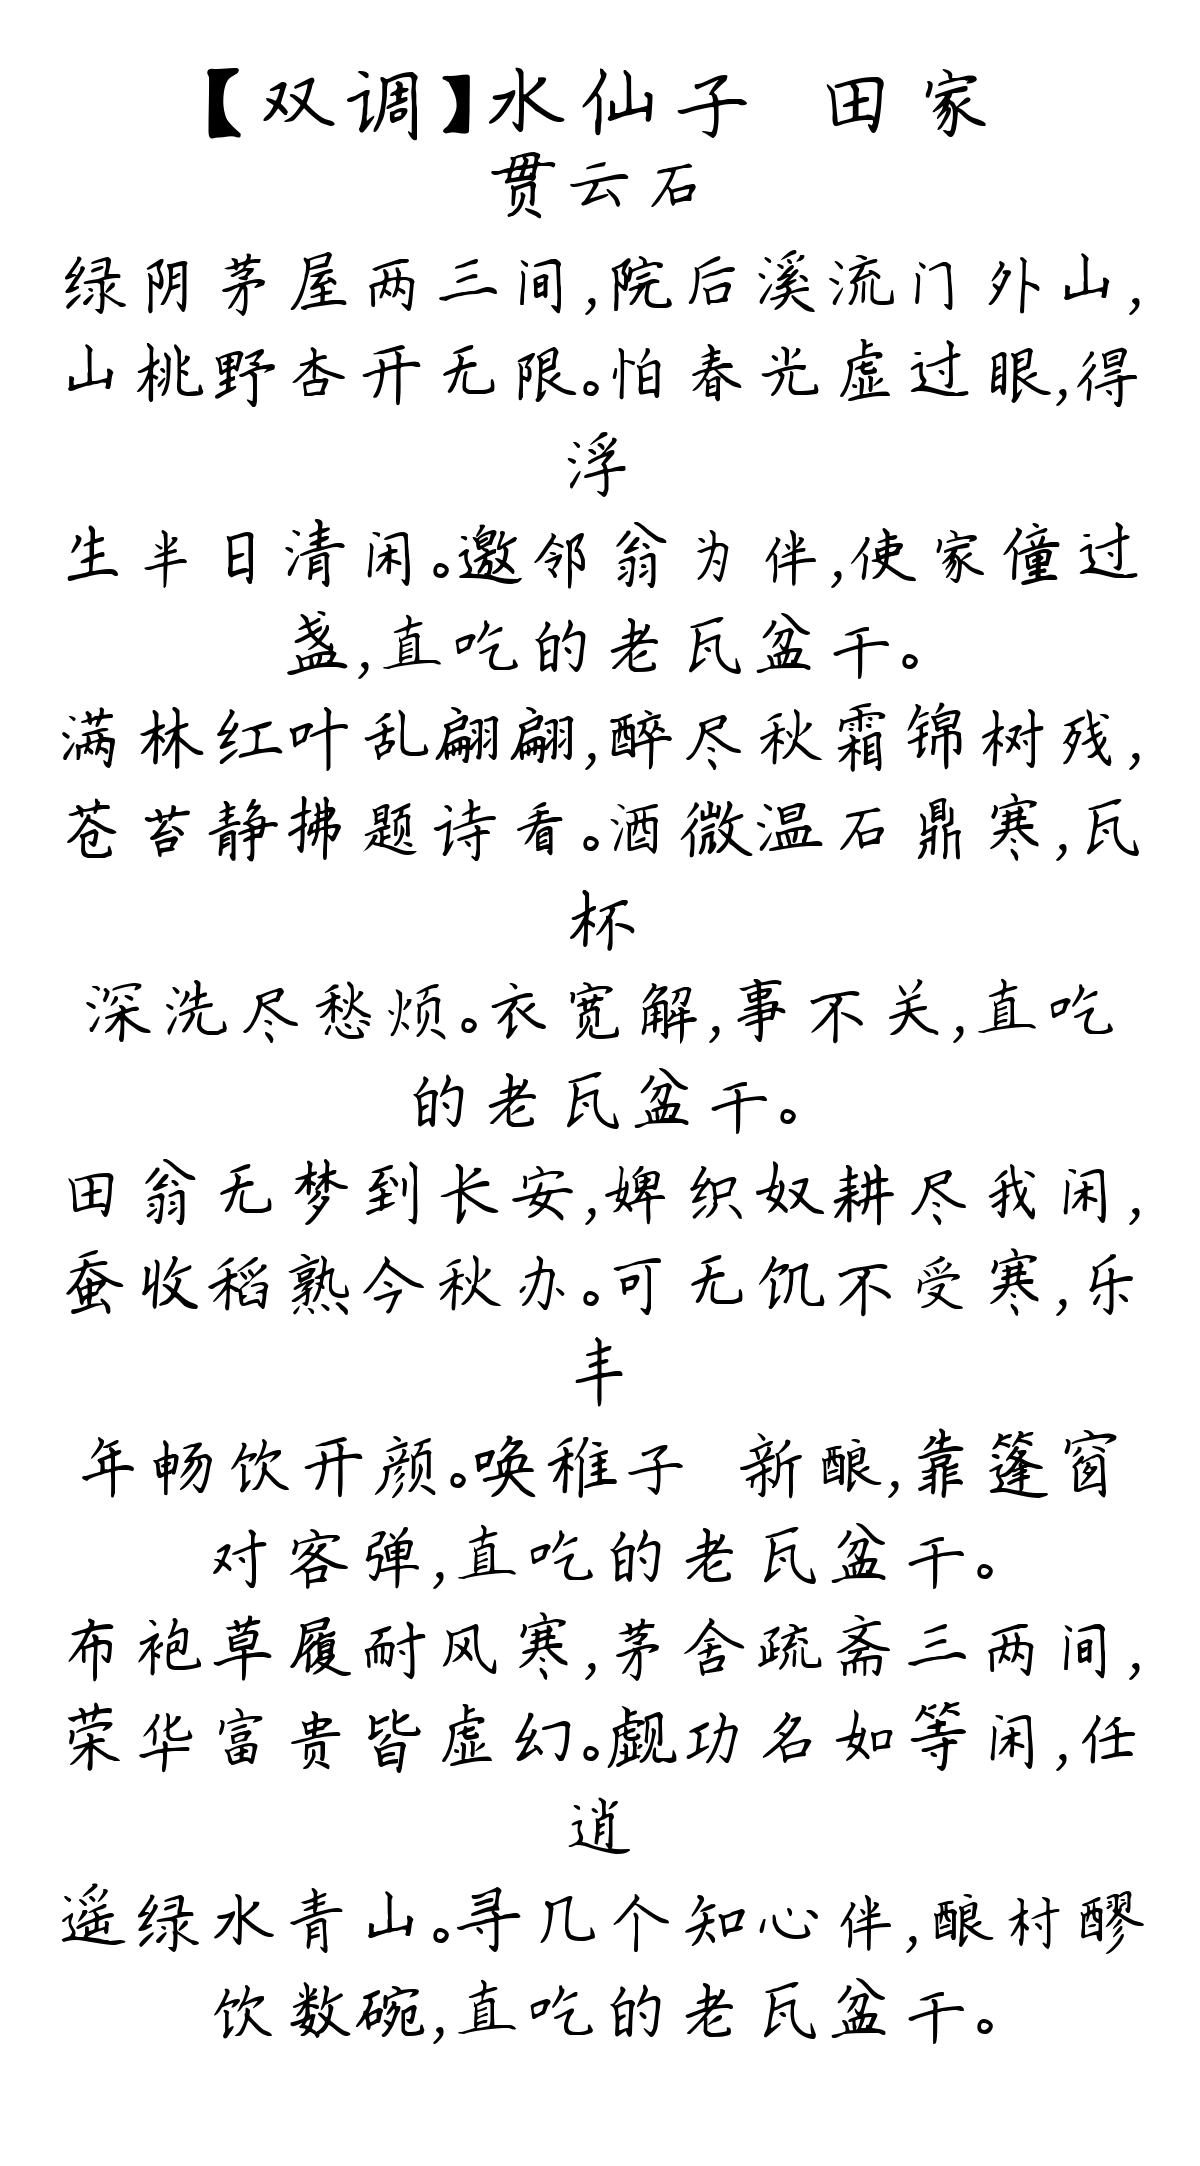 【双调】水仙子 田家
贯云石
绿阴茅屋两三间,院后溪流门外山,
山桃野杏开无限。怕春光虚过眼,得
浮
生半日清闲。邀邻翁为伴,使家僮过
盏,直吃的老瓦盆干。
满林红叶乱翩翩,醉尽秋霜锦树残,
苍苔静拂题诗看。酒微温石鼎寒,瓦
杯
深洗尽愁烦。衣宽解,事不关,直吃
的老瓦盆干。
田翁无梦到长安,婢织奴耕尽我闲,
蚕收稻熟今秋办。可无饥不受寒,乐
丰
年畅饮开颜。唤稚子 新酿,靠篷窗
对客弹,直吃的老瓦盆干。
布袍草履耐风寒,茅舍疏斋三两间,
荣华富贵皆虚幻。觑功名如等闲,任
逍
遥绿水青山。寻几个知心伴,酿村醪
饮数碗,直吃的老瓦盆干。